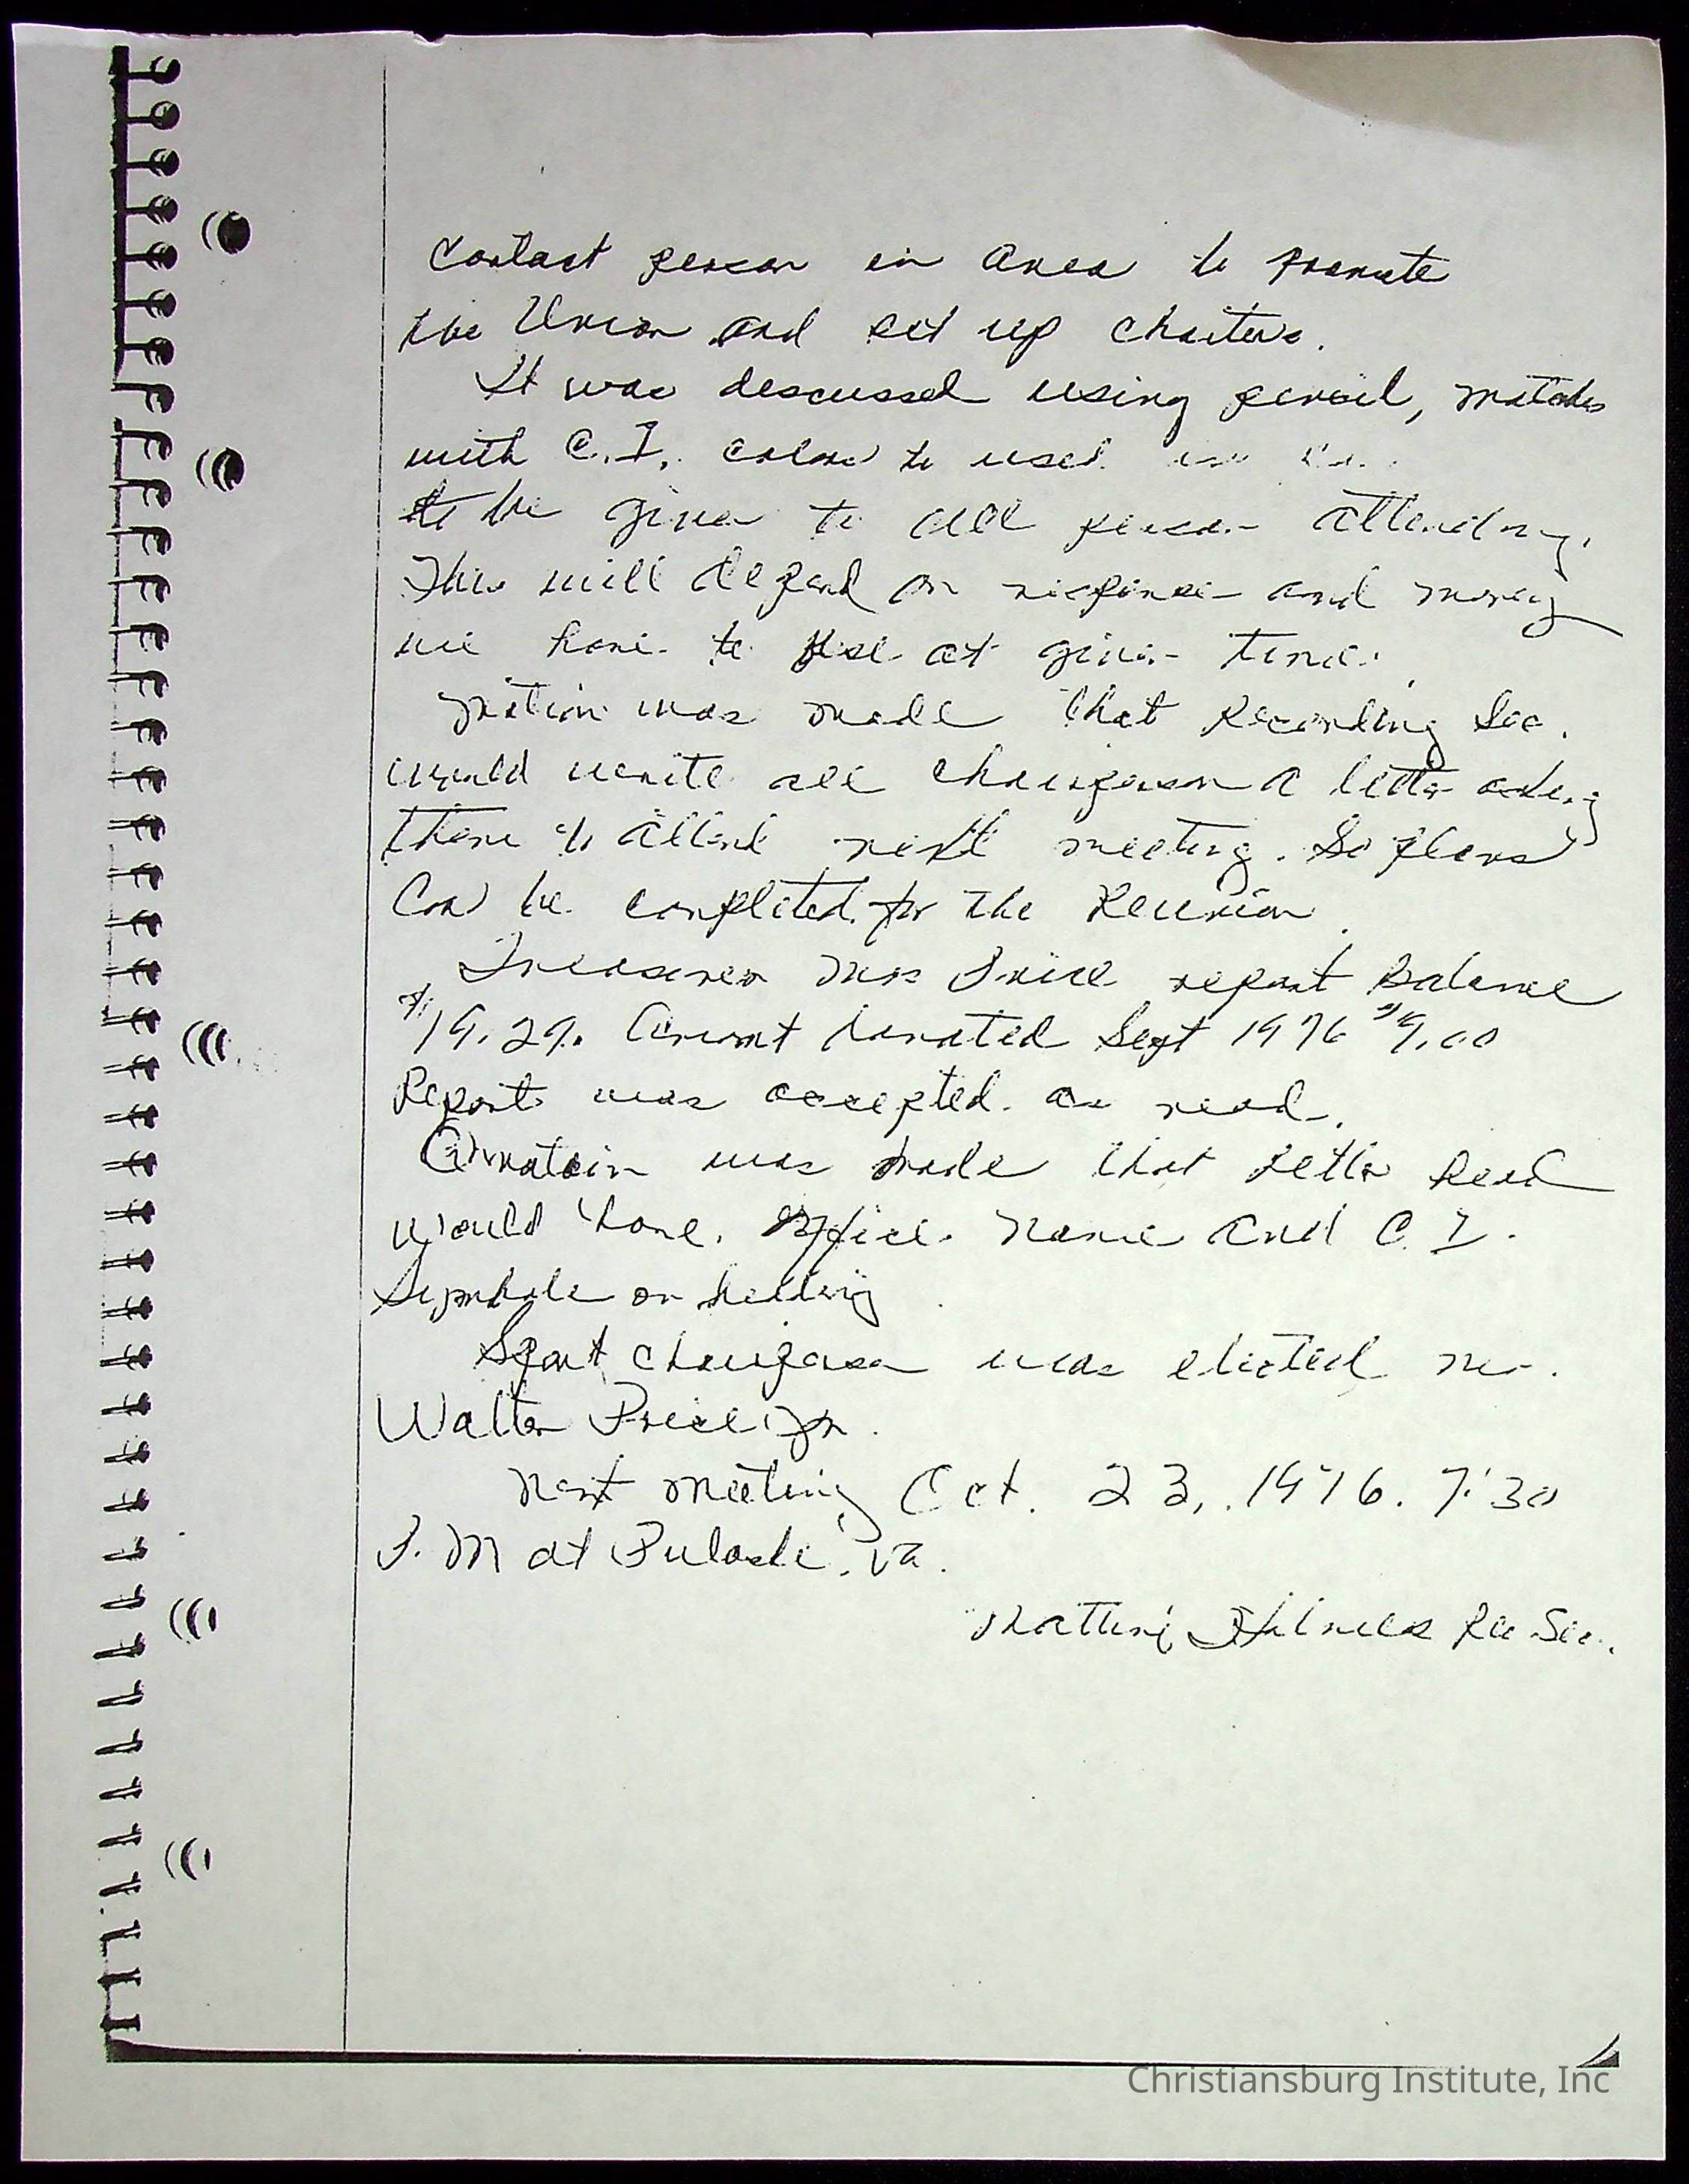 contact person in area to promote
the Union and set up charters.
It was discussed using pencil, matches
with C.I. colors to used
to be given to all person attending.
This will depend on response and money
we have to use at given time.
Motion was made that Recording Sec.
would write all chairperson a letter asking
them to attend next meeting. So plans
can be completed for the Reunion.
Treasurer Mrs Price report Balance
$19.29. Amount donated Sept 1976 $9.00
Report was accepted as read.
was made that letter head
would have, office name and C.I.
Symbole on heading
Sport chairperson was elected Mr.
Walter Price Jr.
Next meeting Oct. 23, 1976. 7:30
P.M at Pulaski, Va.
Rec Sec.
Christiansburg Institute, Inc